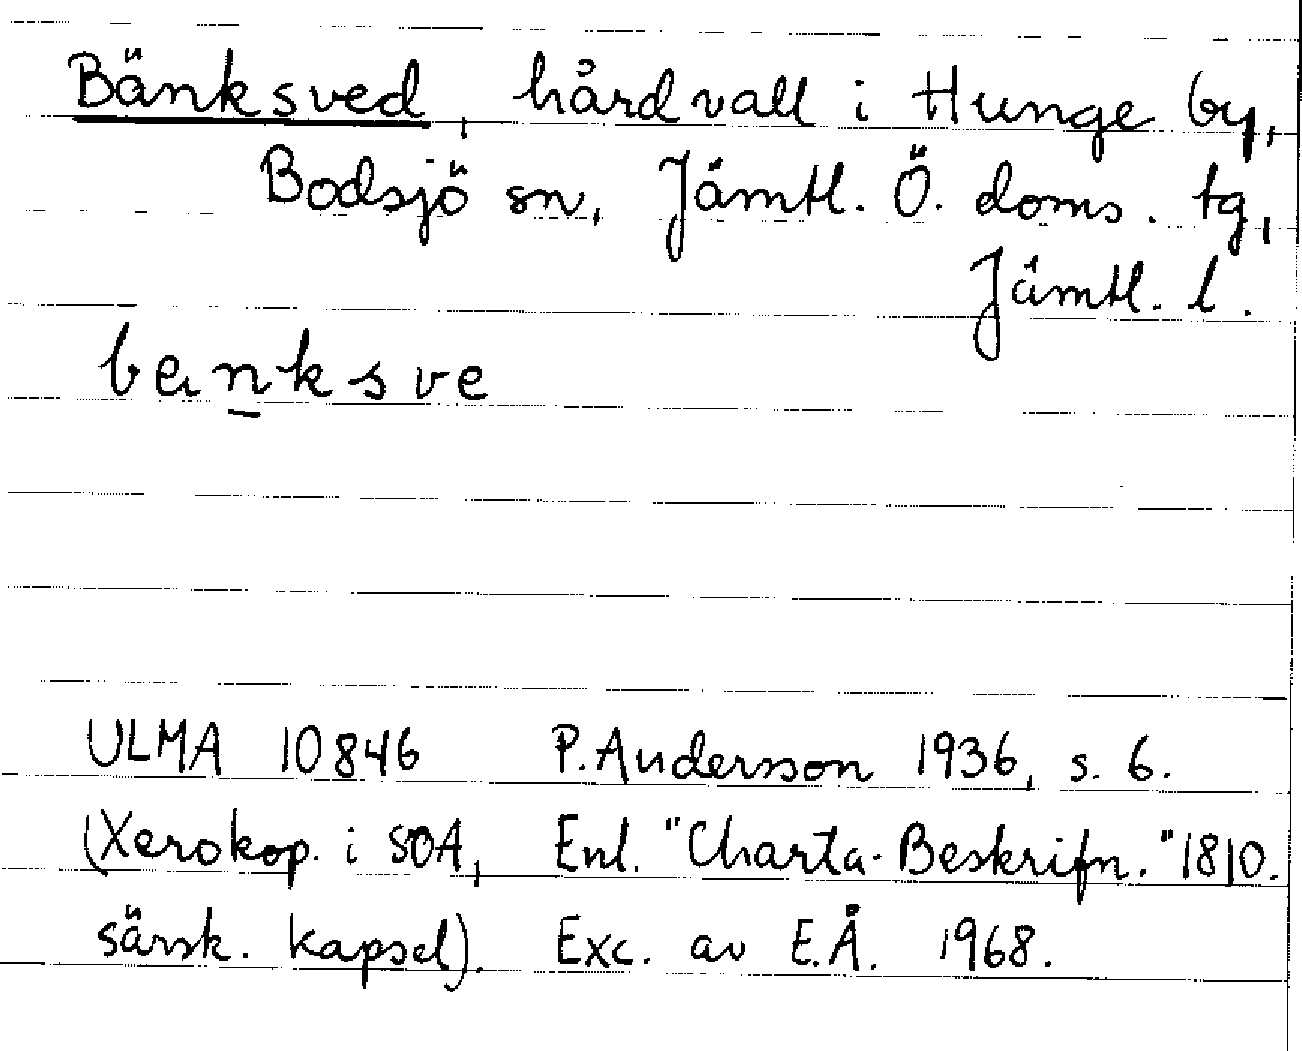 Bänksved, hårdvall i Hunge by,
Bodsjö sn, Jämtl. Ö. doms. tg,
Jämtl. l.
banksve
ULMA 10846 P. Andersson 1936, s. 6.
(Xerokop. i SOA, Enl. "Charta-Beskrifn." 1810.
särsk. kapsel). Exc. av E.Å. 1968.